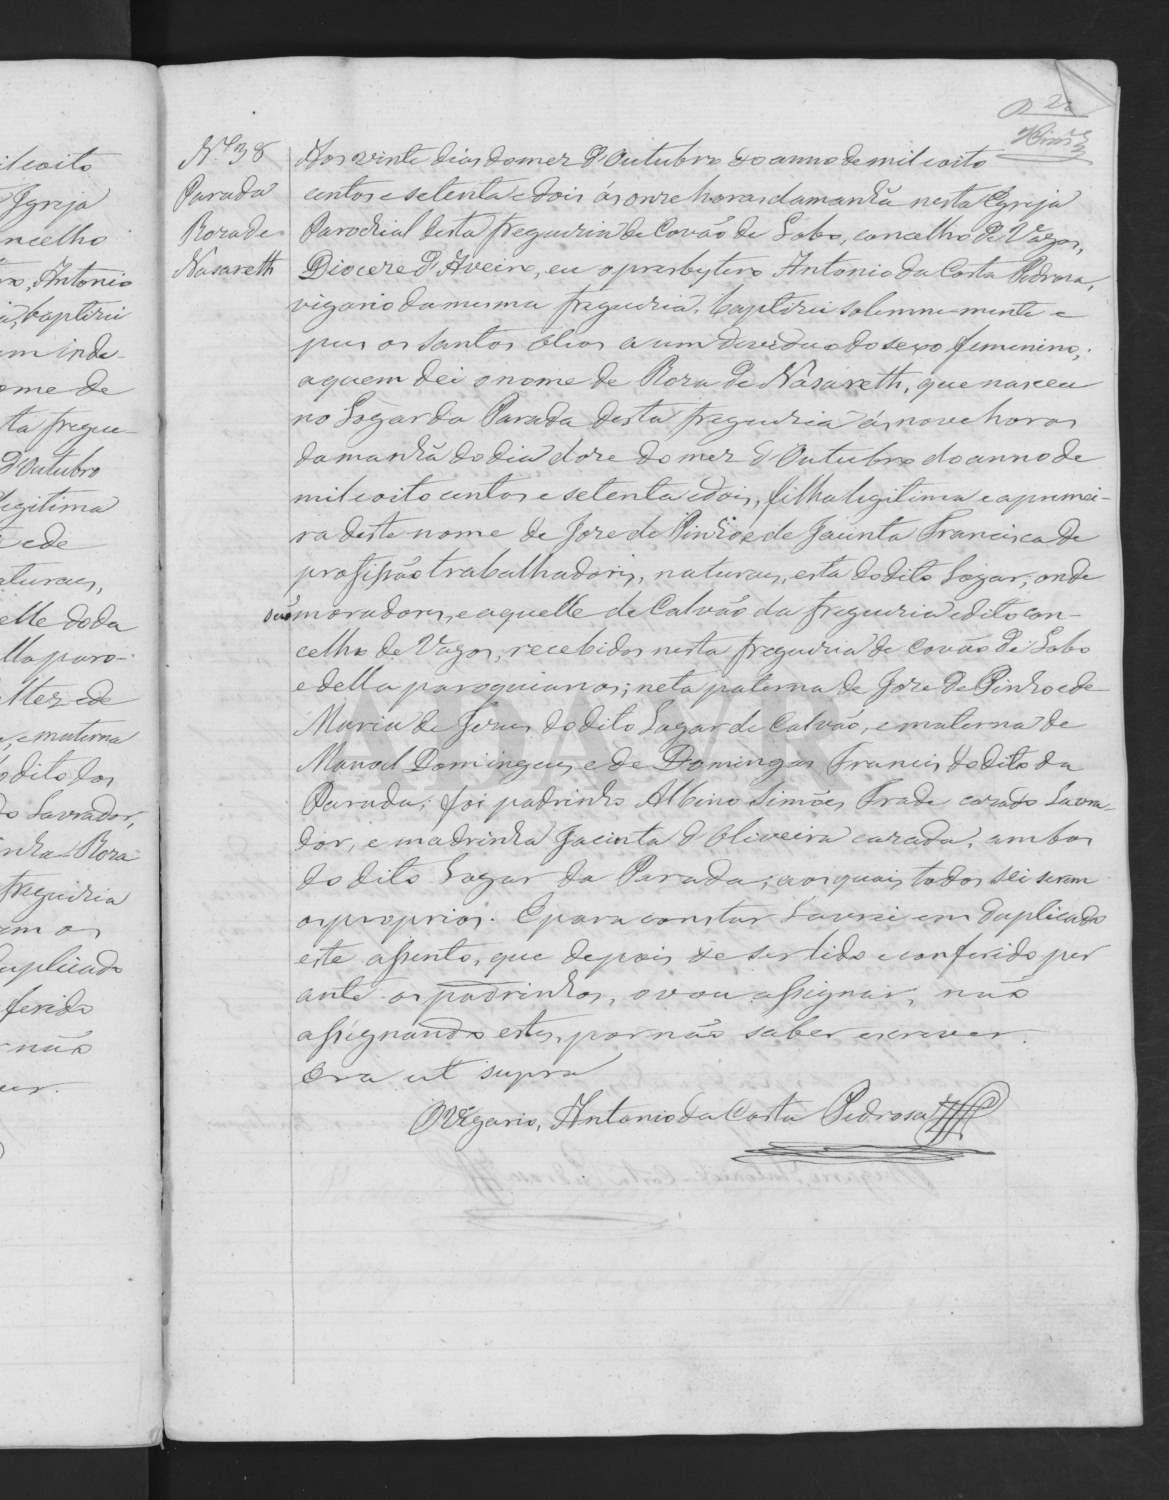 22
N.º 38
Parada
Roza de
Nasareth
Aos vinte dias do mez d'Outubro do anno de mil oito
centos e setenta e dois ás onze horas da manhã nesta Egreja
Parochial desta freguezia de Covão de Lobo, concelho de Vagos,
Diocese d'Aveiro, eu o presbytero Antonio da Costa Pedrosa,
vigario da mesma freguezia, baptizei solemne-mente e
puz os santos óleos a um individuo do sexo femenino,
a quem dei o nome de Roza de Nasareth, que nasceu
no Logar da Parada desta freguezia ás nove horas
da manhã do dia doze do mez d'Outubro do anno de
mil oito centos e setenta e dois, filha legitima e a primei-
ra deste nome de Joze de Pinho e de Jacinta Francisca de
profissão trabalhadores, naturaes, esta do dito Logar, onde
são moradores, e aquelle de Calvão da freguezia e dito con-
celho de Vagos, recebidos nesta freguezia de Covão de Lobo
e della paroquianos; neta paterna de Joze de Pinho e de
Maria de Jezus do dito Lugar de Calvão, e materna de
Manoel Domingues e de Domingas Francis do dito da
Parada; foi padrinho Albino Simões Frade cazado Lavra-
dor, e madrinha Jacinta d'Oliveira cazada, ambos
do dito Logar da Parada; aos quais todos sei serem
os proprios. E para constar Lavrei em duplicado
este assento, que depois de ser lido e conferido per
ante os padrinhos, o vou assignar, não
assignando estes, por não saber escrever.
Era ut supra
O Vigario, Antonio da Costa Pedrosa
ADAVR
il oito
Igreja
ncelho
Antonio
baptizei
m inde-
ome de
ta fregue-
d'Outubro
legitima
e de
aturaes,
elle do da
lla paro-
e de
e materna
o dito dos
o Lavrador,
inha Roza
freguezia
em os
duplicado
ferido
não